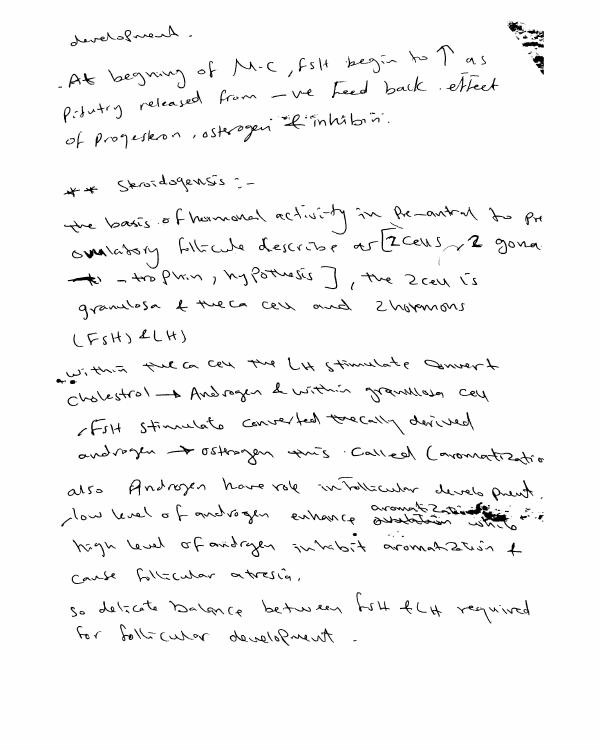 development.
. At begning of M-C, FSH begin to ↑ as
Pitutry released from -ve feed back effect
of Progestron, osterogen & inhibin.
** Steroidogensis :-
the basis of hormonal activity in Pre-antral to pre
ovulatory follicule describe as [2 cells, 2 gona
- trophin, hypothesis], the 2 cell is
granulosa & theca cell and 2 hormons
(FSH) & LH)
within theca cell the LH stimulate convert
cholestrol → Androgen & within granulosa cell
, FSH stimulate converted thecally derived
androgen → osterogen this called (aromatizatio
also Androgen have role in follicular development.
, low level of androgen enhance aromatization while
high level of androgen inhibit aromatization &
cause follicular atresia,
so delicate balance between FSH & LH required
for follicular development.